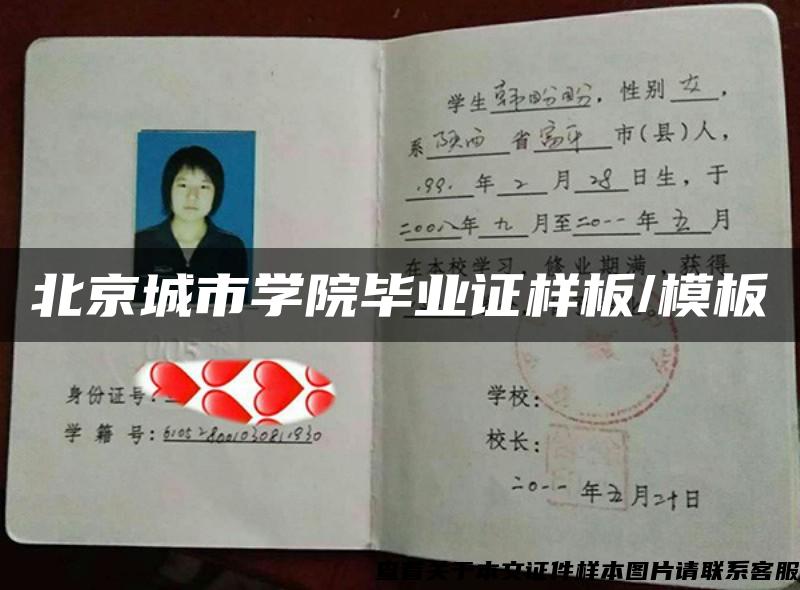 学生韩盼盼，性别女，
系陕西省富平市(县)人，
1991年2月28日生，于
二00八年九月至二0一一年五月
在本校学习，修业期满，获得
北京城市学院毕业证样板/模板
身份证号：
学籍号：610528001030811930
学校：
校长：
二0一一年五月二十日
查看关于本文证件样本图片请联系客服